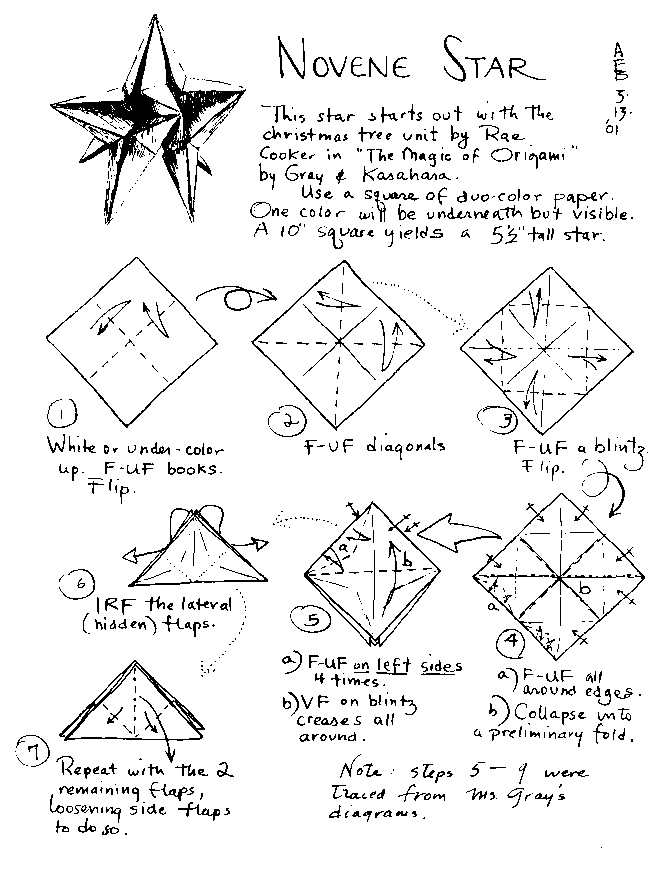 NOVENE STAR
AEB
3.
13.
'01
This star starts out with the
christmas tree unit by Rae
Cooker in "The Magic of Origami"
by Gray & Kasahara.
Use a square of duo-color paper.
One color will be underneath but visible.
A 10" square yields a 5½" tall star.
1
White or under-color
up. F-UF books.
Flip.
2
F-UF diagonals
3
F-UF a blintz
Flip.
4
a
b
a) F-UF all
around edges.
b) Collapse into
a preliminary fold.
5
a
b
a) F-UF on left sides
4 times.
b) VF on blintz
creases all
around.
6
IRF the lateral
(hidden) flaps.
7
Repeat with the 2
remaining flaps,
loosening side flaps
to do so.
Note: steps 5-9 were
traced from Ms. Gray's
diagrams.